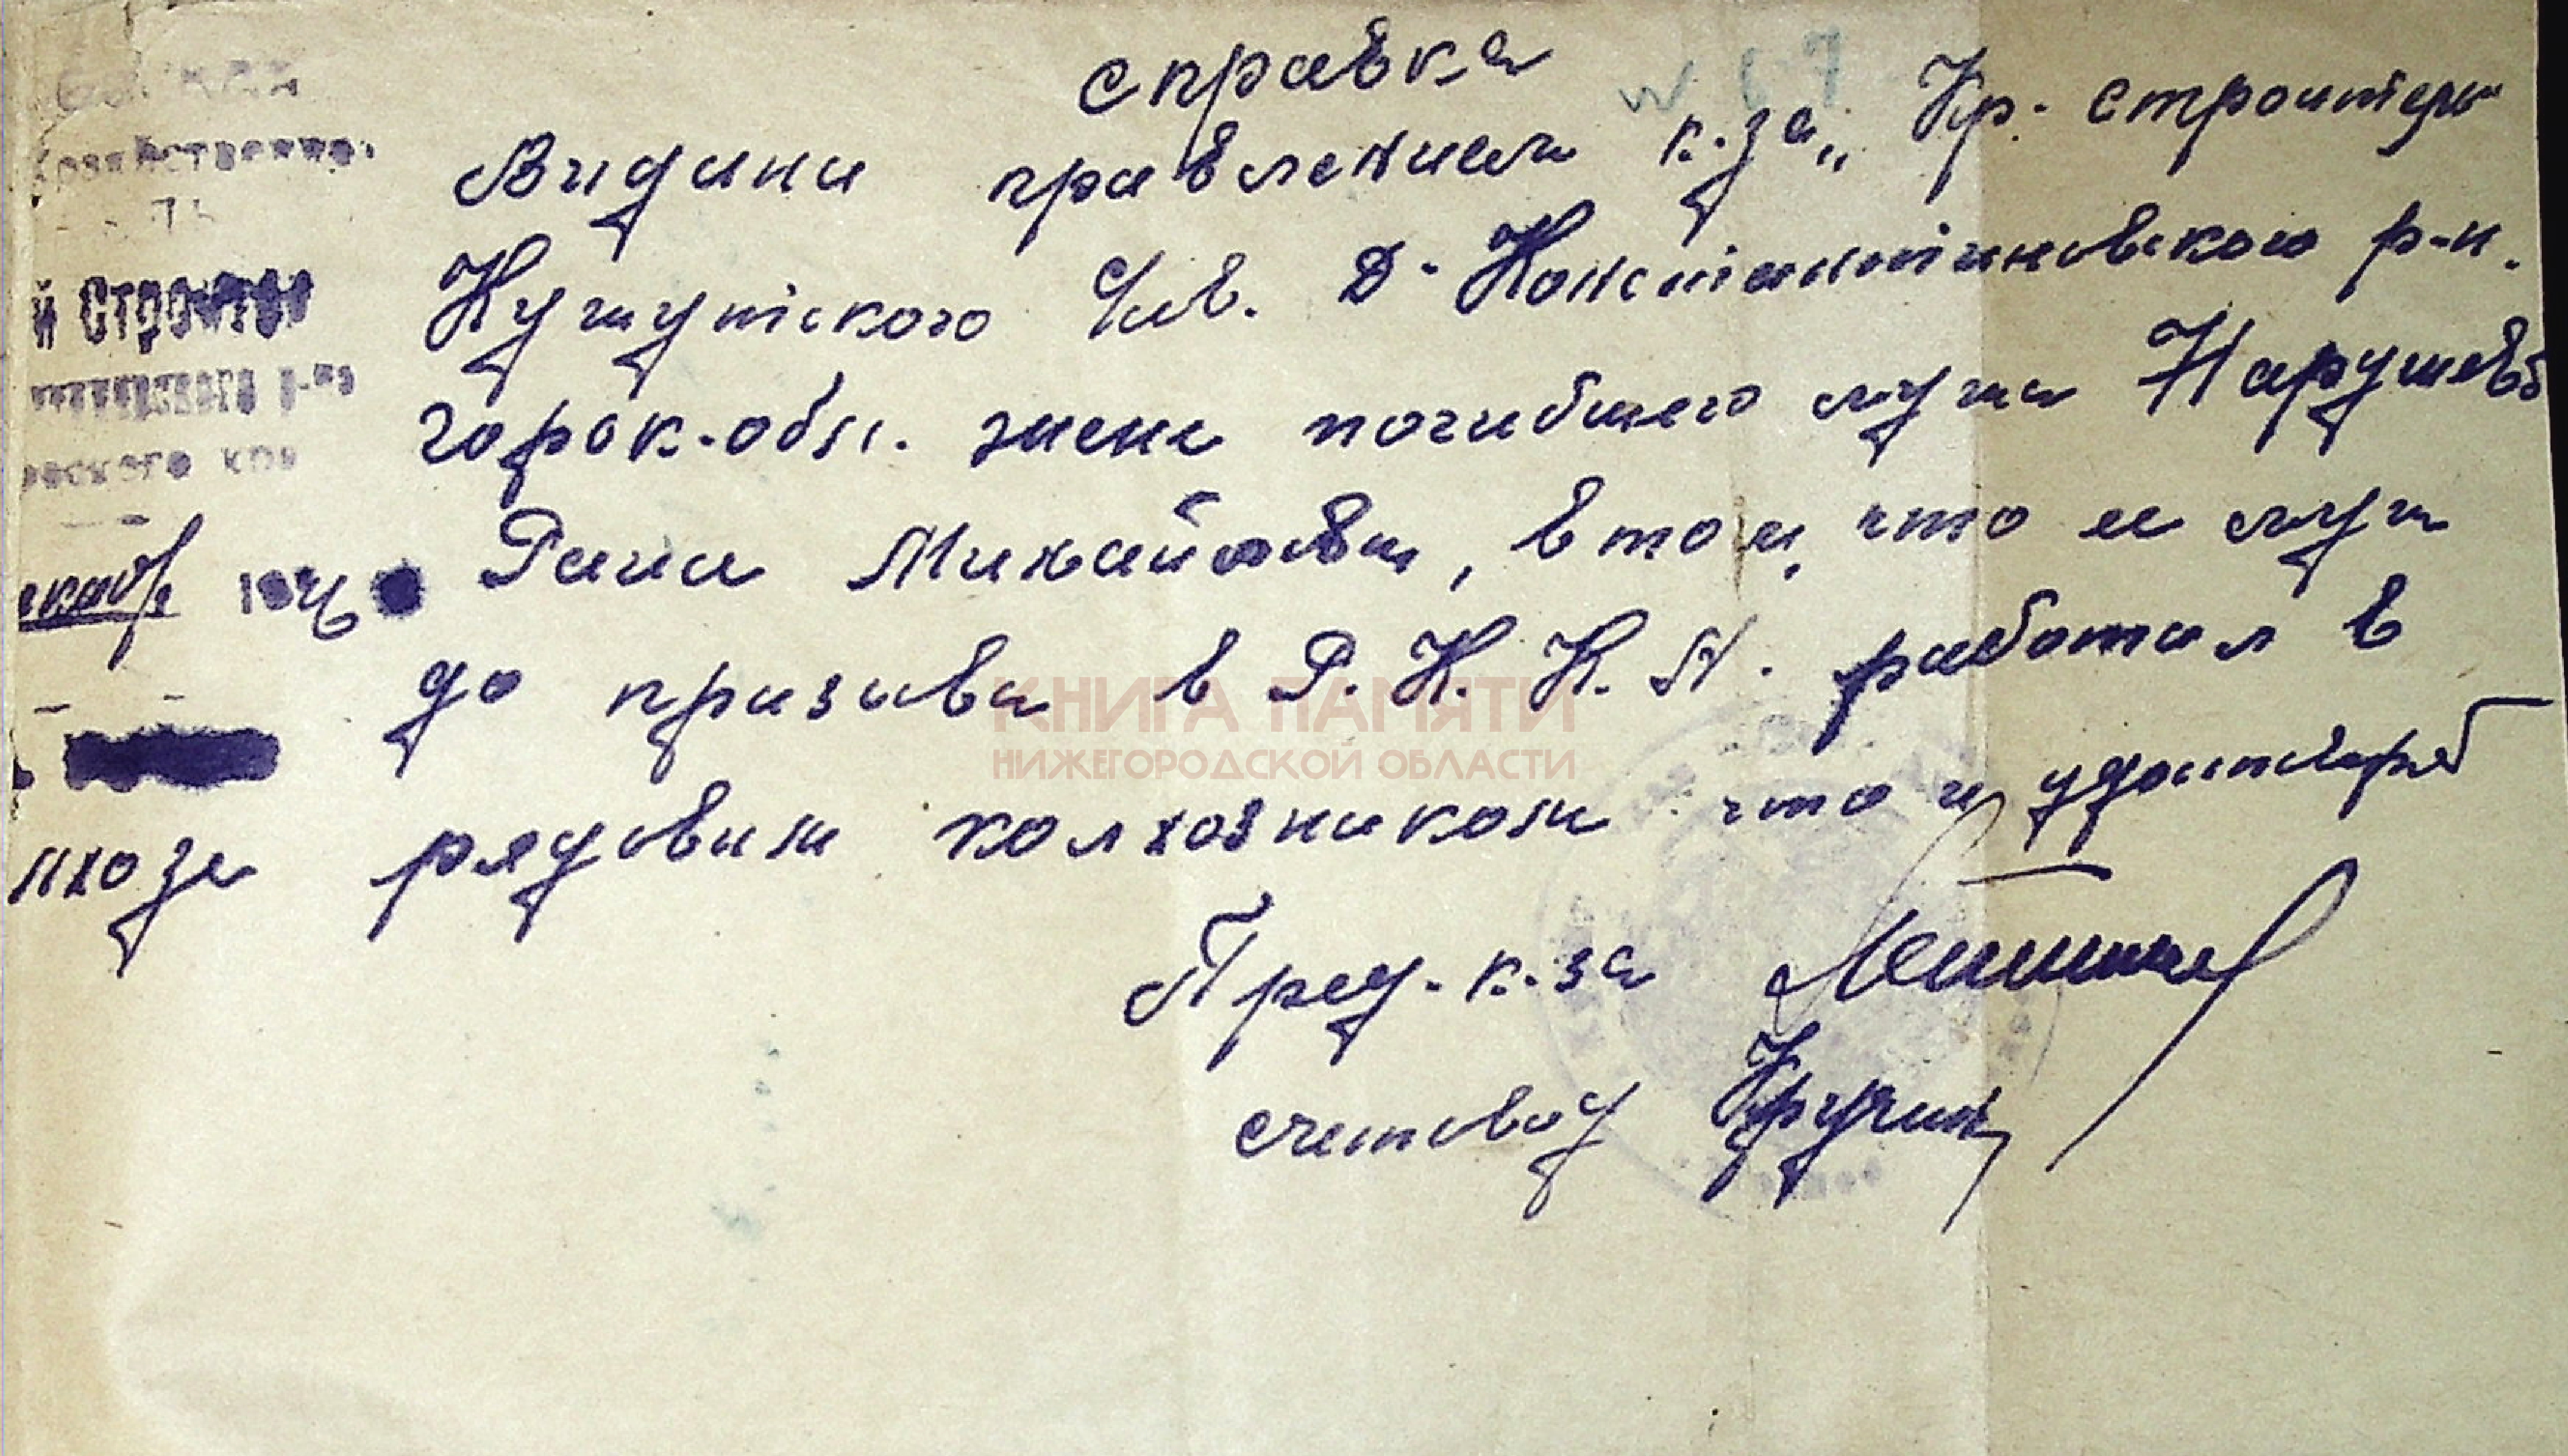 справка
Видана правлением к.за „Кр. строитель
Кужутского с/сов. Д-Константиновского р-н.
горьк.обл. жене погибшего мужа Нарушева
Раиса Михайловна, в том, что ее муж
до призыва в Р.К.К.А. работал в
лхоза рядовим колхозником что и удоствряет
Пред.к.за
счетовод Кручин
й Строитель
1946
КНИГА ПАМЯТИ
НИЖЕГОРОДСКОЙ ОБЛАСТИ